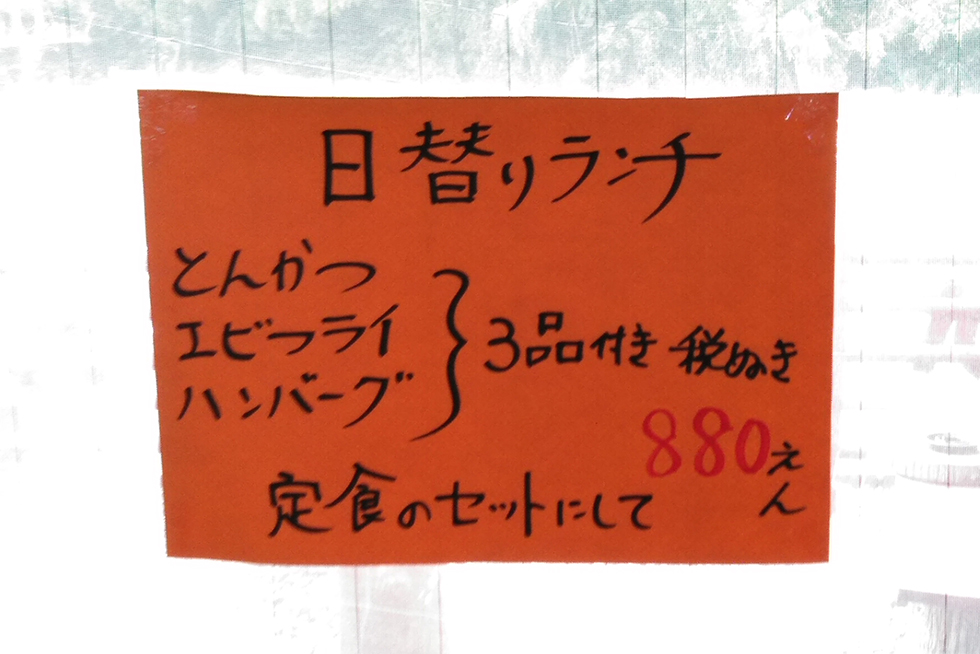 日替りランチ
とんかつ
エビフライ
ハンバーグ
3品付き 税ぬき
880えん
定食のセットにして